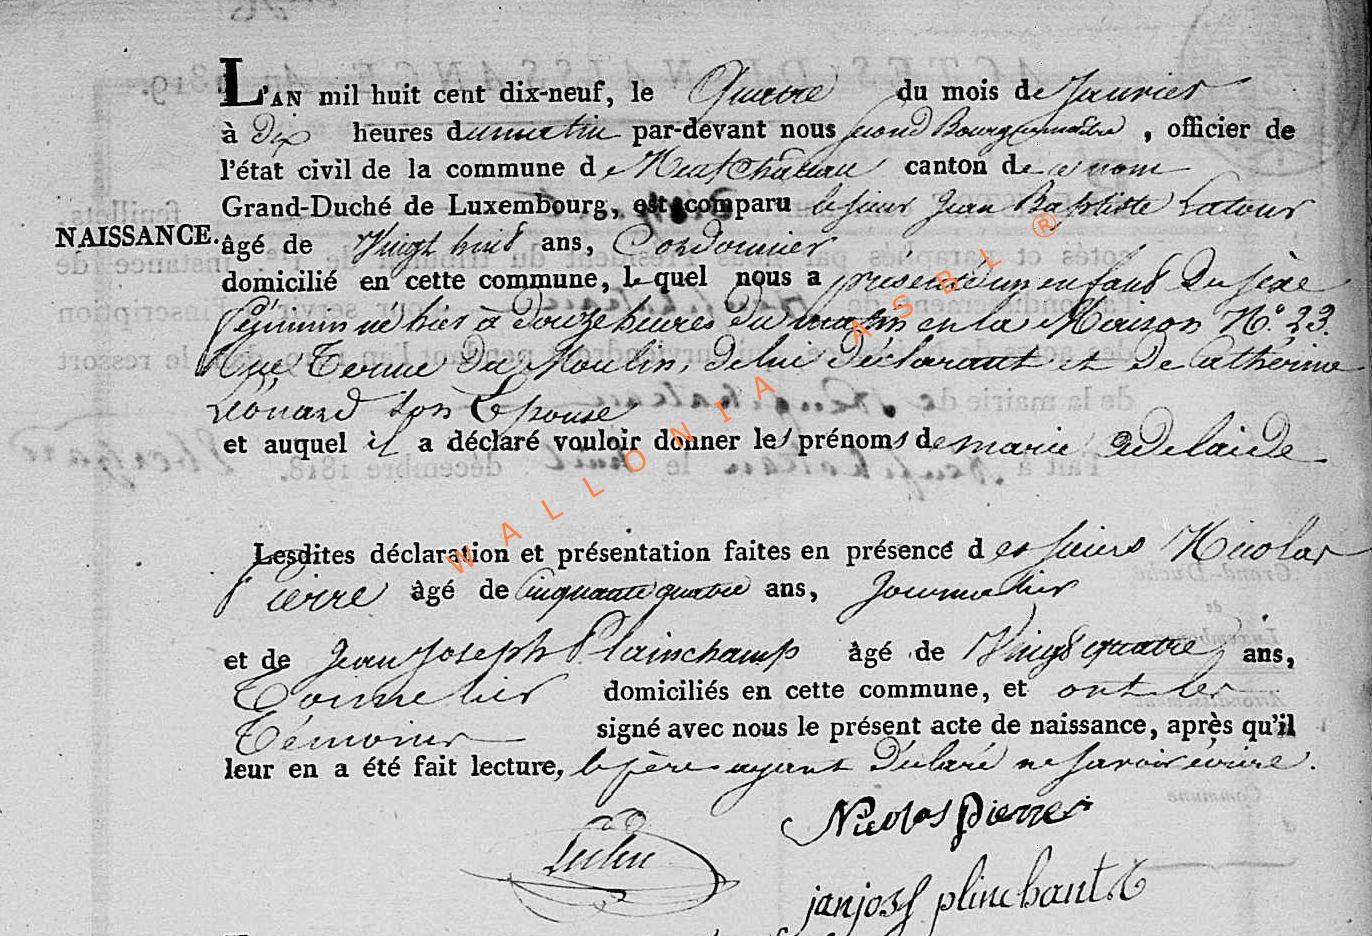 L'AN mil huit cent dix-neuf, le Quatre du mois de Janvier
à dix heures du matin par-devant nous second Bourguemaitre, officier de
l'état civil de la commune de Neufchâteau canton de ce nom
Grand-Duché de Luxembourg, est comparu le sieur Jean Baptiste Latour
NAISSANCE.
âgé de Vingt huit ans, Cordonnier
domicilié en cette commune, lequel nous a presenté un enfant du sexe
feminin né hier à douze heures du matin en la Maison N.º 23.
Rue Terme du Moulin, de lui déclarant et de Catherine
Léonard son Epouse
et auquel il a déclaré vouloir donner les prénoms de marie adelaide
Lesdites déclaration et présentation faites en présence des sieurs Nicolas
Pierre âgé de Cinquante quatre ans, Journalier
et de Jean Joseph Plainchamp âgé de Vingt quatre ans,
Tonnelier domiciliés en cette commune, et ont les
Témoins signé avec nous le présent acte de naissance, après qu'il
leur en a été fait lecture, le père ayant déclaré ne savoir écrire.
Nicolas pierre
janjosf plinchant
WALLONIA ASBL ®